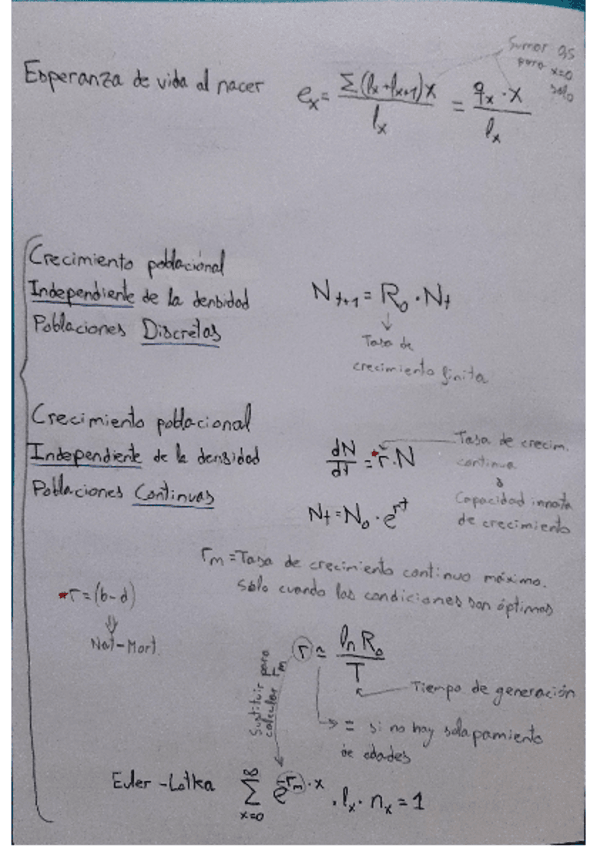 Sumar 95
para x=0
solo
Esperanza de vida al nacer eₓ = Σ(lₓ+lₓ₊₁)x / lₓ = qₓ·x / lₓ
Crecimiento poblacional
Independiente de la densidad
Poblaciones Discretas
Nₜ₊₁ = R₀·Nₜ
Tasa de
crecimiento finita
Crecimiento poblacional
Independiente de la densidad
Poblaciones Continuas
dN/dt = *r·N
Tasa de crecim.
continua
o
Capacidad innata
de crecimiento
Nₜ = N₀·eʳᵗ
rₘ = Tasa de crecimiento continuo máximo.
Sólo cuando las condiciones son óptimas
*r = (b-d)
Nat-Mort
r ≃ ln R₀ / T
Tiempo de generación
= si no hay solapamiento
de edades
Sustituir para
calcular rₘ
Euler-Lotka ∞Σx=0 e^(-rₘ·x) · lₓ · nₓ = 1